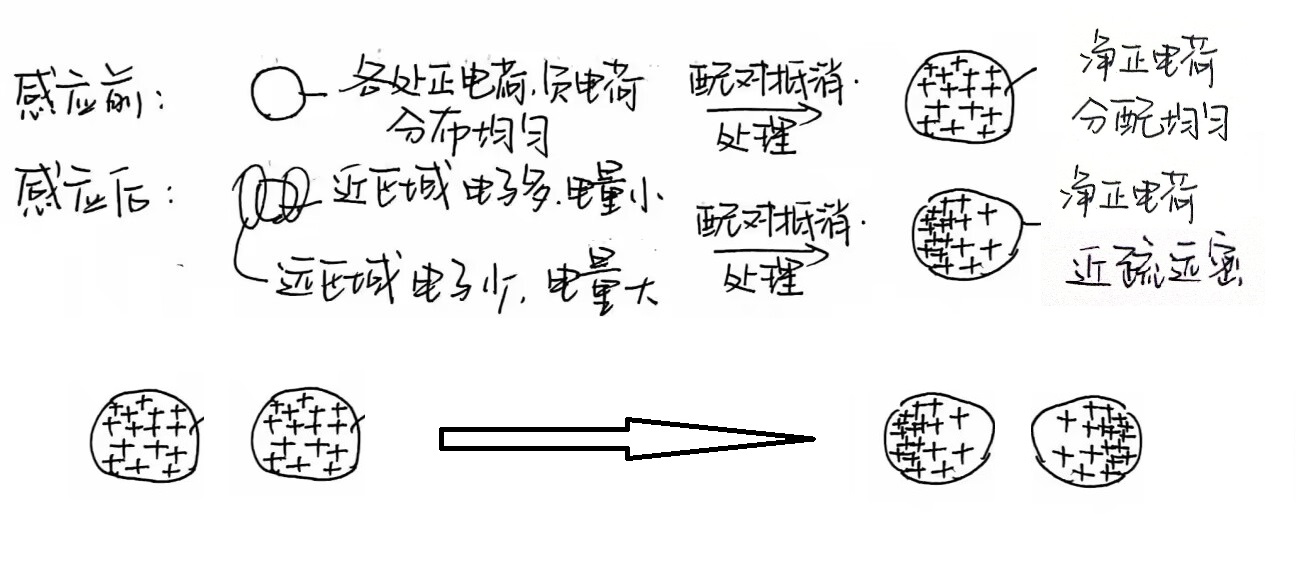 感应前：
各处正电荷、负电荷
分布均匀
配对抵消
处理
净正电荷
分配均匀
感应后：
近区域电子多、电量小
远区域电子少、电量大
配对抵消
处理
净正电荷
近疏远密